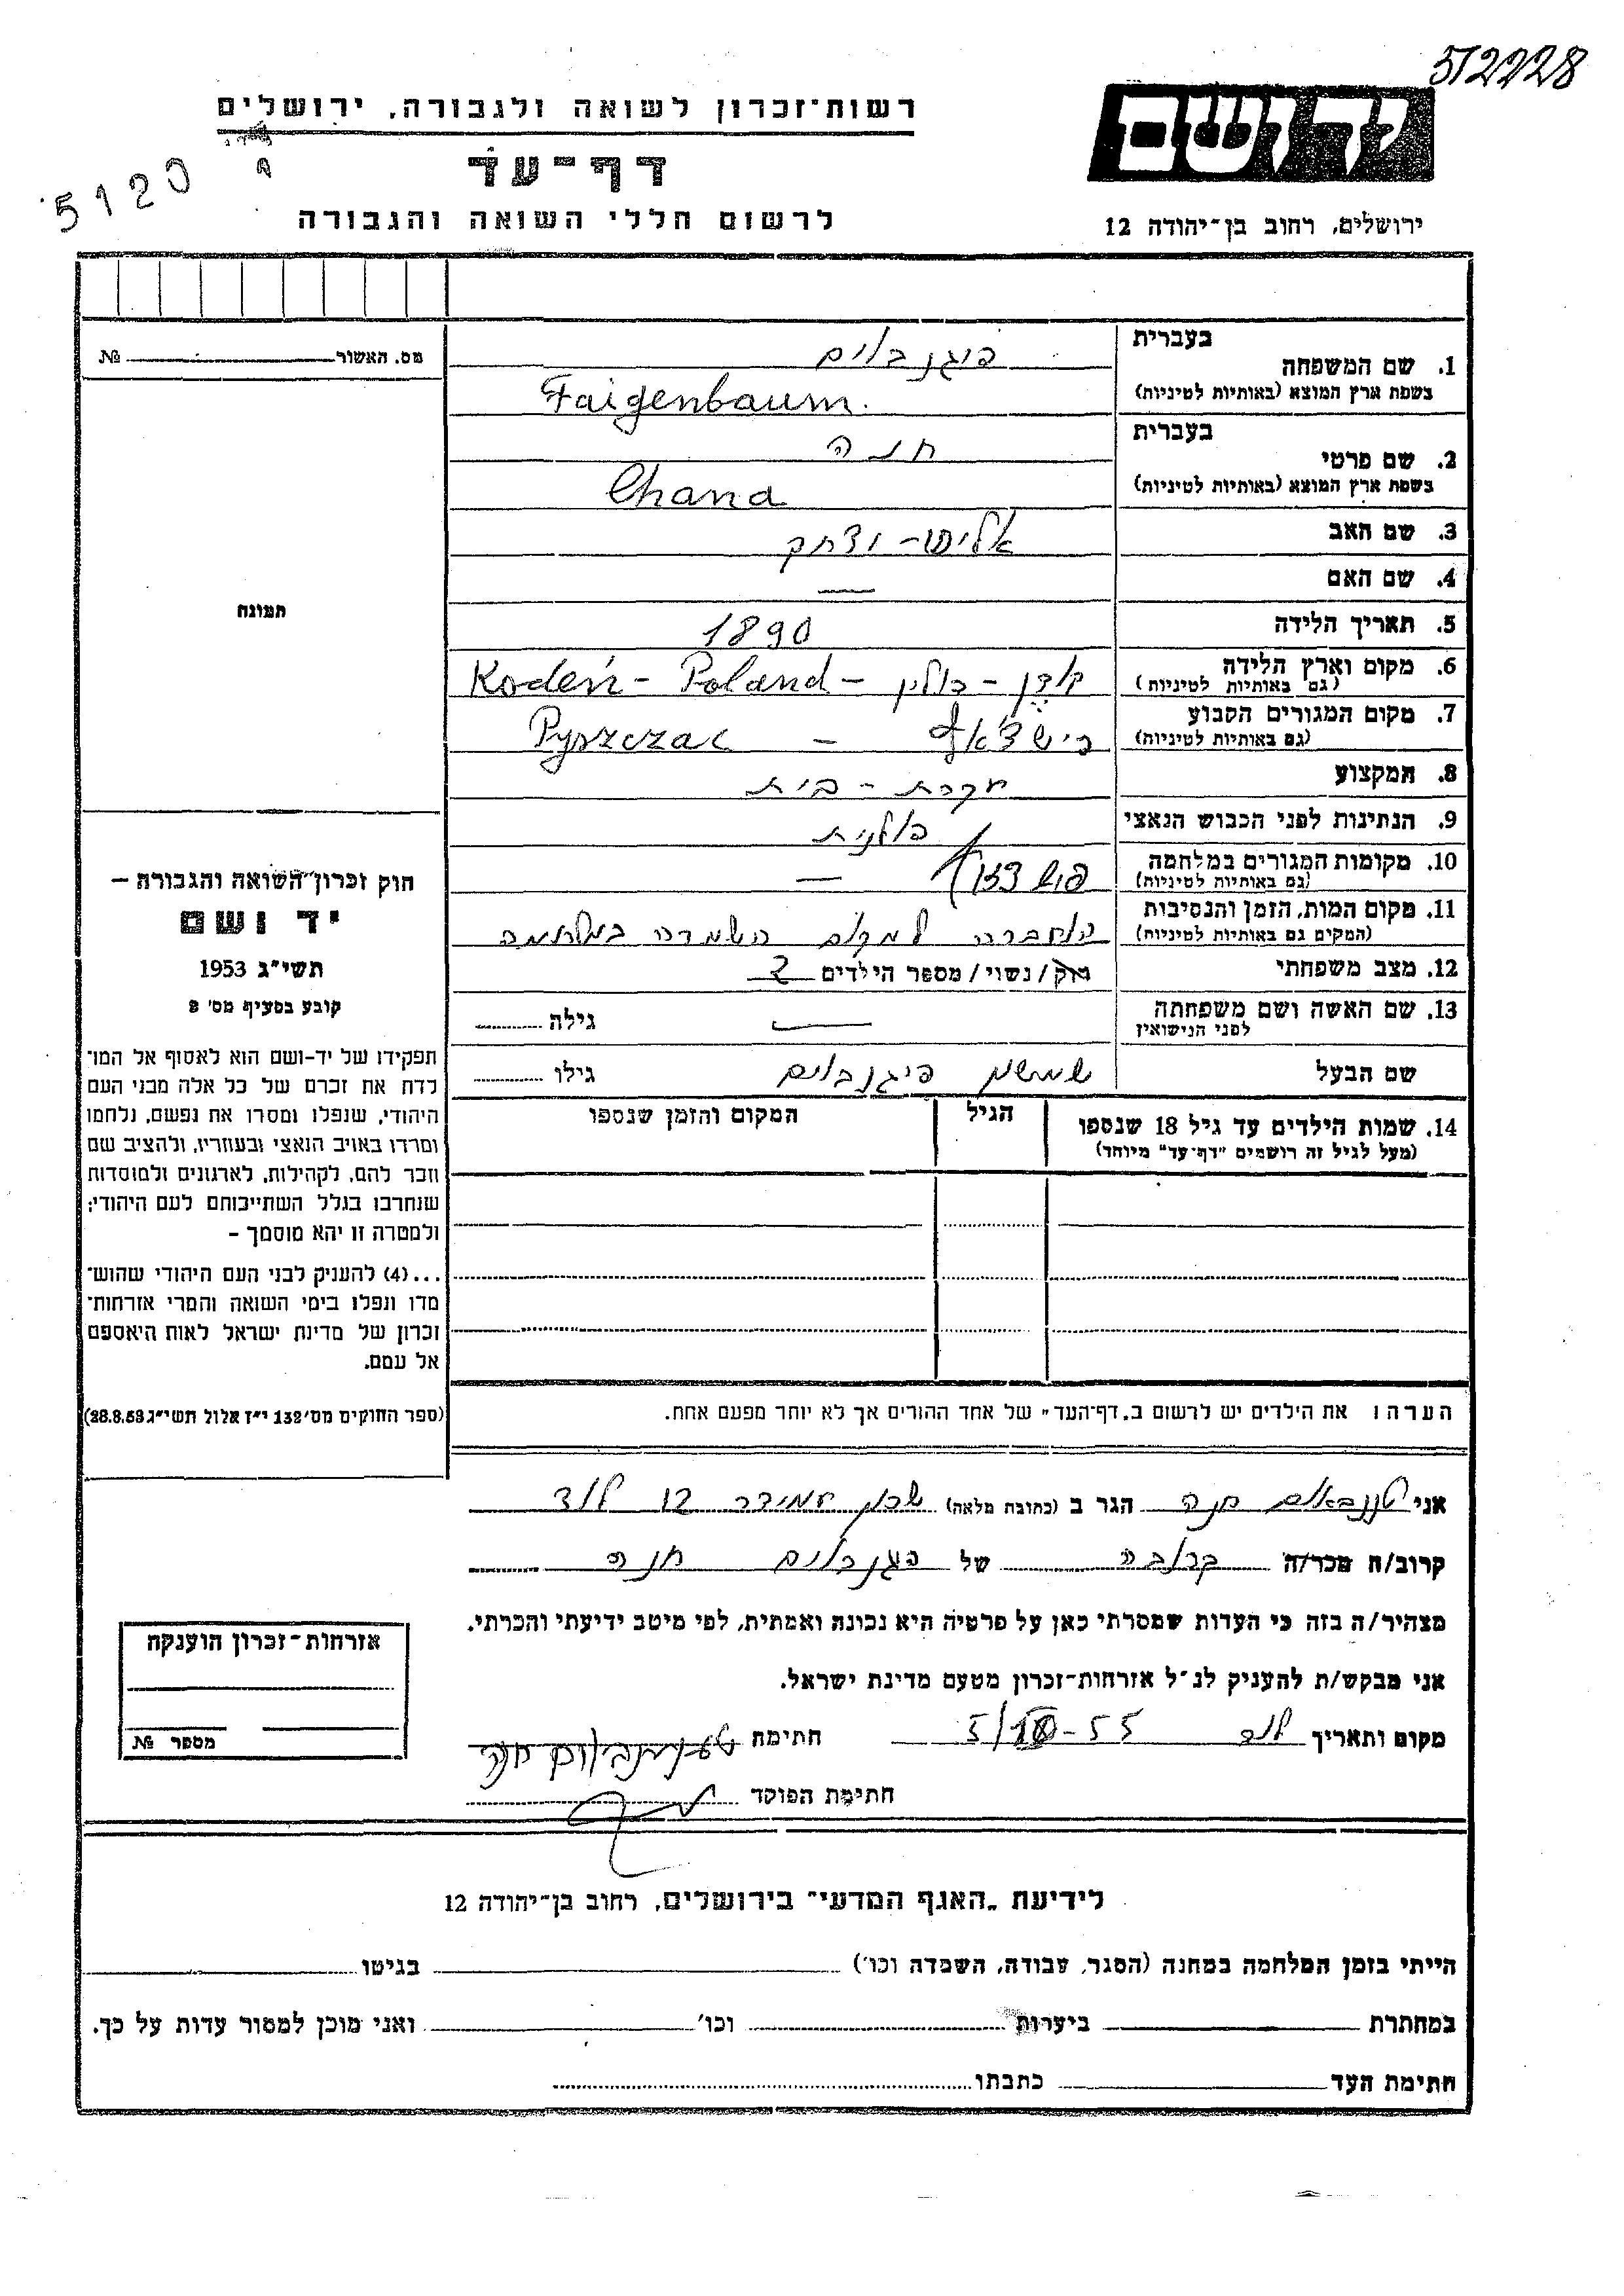 512228
רשות־זכרון לשואה ולגבורה, ירושלים
דף־עד
לרשום חללי השואה והגבורה
5120
יד ושם
ירושלים, רחוב בן־יהודה 12
מס. האשור № 
תמונה
בעברית
1. שם המשפחה פיגנבוים
בשפת ארץ המוצא (באותיות לטיניות) Faigenbaum.
בעברית
2. שם פרטי חנה
בשפת ארץ המוצא (באותיות לטיניות) Chana
3. שם האב
4. שם האם —
5. תאריך הלידה 1890
6. מקום וארץ הלידה קודן - פולין - Koden - Poland
(גם באותיות לטיניות)
7. מקום המגורים הקבוע - Pyszczac
(גם באותיות לטיניות)
8. המקצוע עקרת - בית
9. הנתינות לפני הכבוש הנאצי פולנית
10. מקומות המגורים במלחמה —
(גם באותיות לטיניות)
11. מקום המות, הזמן והנסיבות הועברה למקום השמדה במלחמה
(המקום גם באותיות לטיניות)
12. מצב משפחתי רוק/נשוי/מספר הילדים 2
13. שם האשה ושם משפחתה — גילה
לפני הנישואין
שם הבעל פיגנבוים גילו
14. שמות הילדים עד גיל 18 שנספו הגיל המקום והזמן שנספו
(מעל לגיל זה רושמים "דף־עד" מיוחד)
הערה: את הילדים יש לרשום ב„דף־העד" של אחד ההורים אך לא יותר מפעם אחת.
חוק זכרון השואה והגבורה —
יד ושם
תשי״ג 1953
קובע בסעיף מס׳ 2
תפקידו של יד-ושם הוא לאסוף אל המו־
לדת את זכרם של כל אלה מבני העם
היהודי, שנפלו ומסרו את נפשם, נלחמו
ומרדו באויב הנאצי ובעוזריו, ולהציב שם
וזכר להם, לקהילות, לארגונים ולמוסדות
שנחרבו בגלל השתייכותם לעם היהודי;
ולמטרה זו יהא מוסמך –
...(4) להעניק לבני העם היהודי שהוש־
מדו ונפלו בימי השואה והמרי אזרחות־
זכרון של מדינת ישראל לאות היאספם
אל עמם.
(ספר החוקים מס׳ 132 י״ז אלול תשי״ג 28.8.53)
אני חנה הגר ב (כתובת מלאה) שכון עמידר לוד
קרוב/ה מכר/ה קרובה של חנה
מצהיר/ה בזה כי העדות שמסרתי כאן על פרטיה היא נכונה ואמתית, לפי מיטב ידיעתי והכרתי.
אני מבקש/ת להעניק לנ״ל אזרחות-זכרון מטעם מדינת ישראל.
מקום ותאריך לוד חתימה
חתימת הפוקד
אזרחות-זכרון הוענקה
מספר №
לידיעת „האגף המדעי" בירושלים, רחוב בן־יהודה 12
הייתי בזמן המלחמה במחנה (הסגר, עבודה, השמדה וכו׳) בגיטו
במחתרת ביערות וכו׳ ואני מוכן למסור עדות על כך.
חתימת העד כתבתו